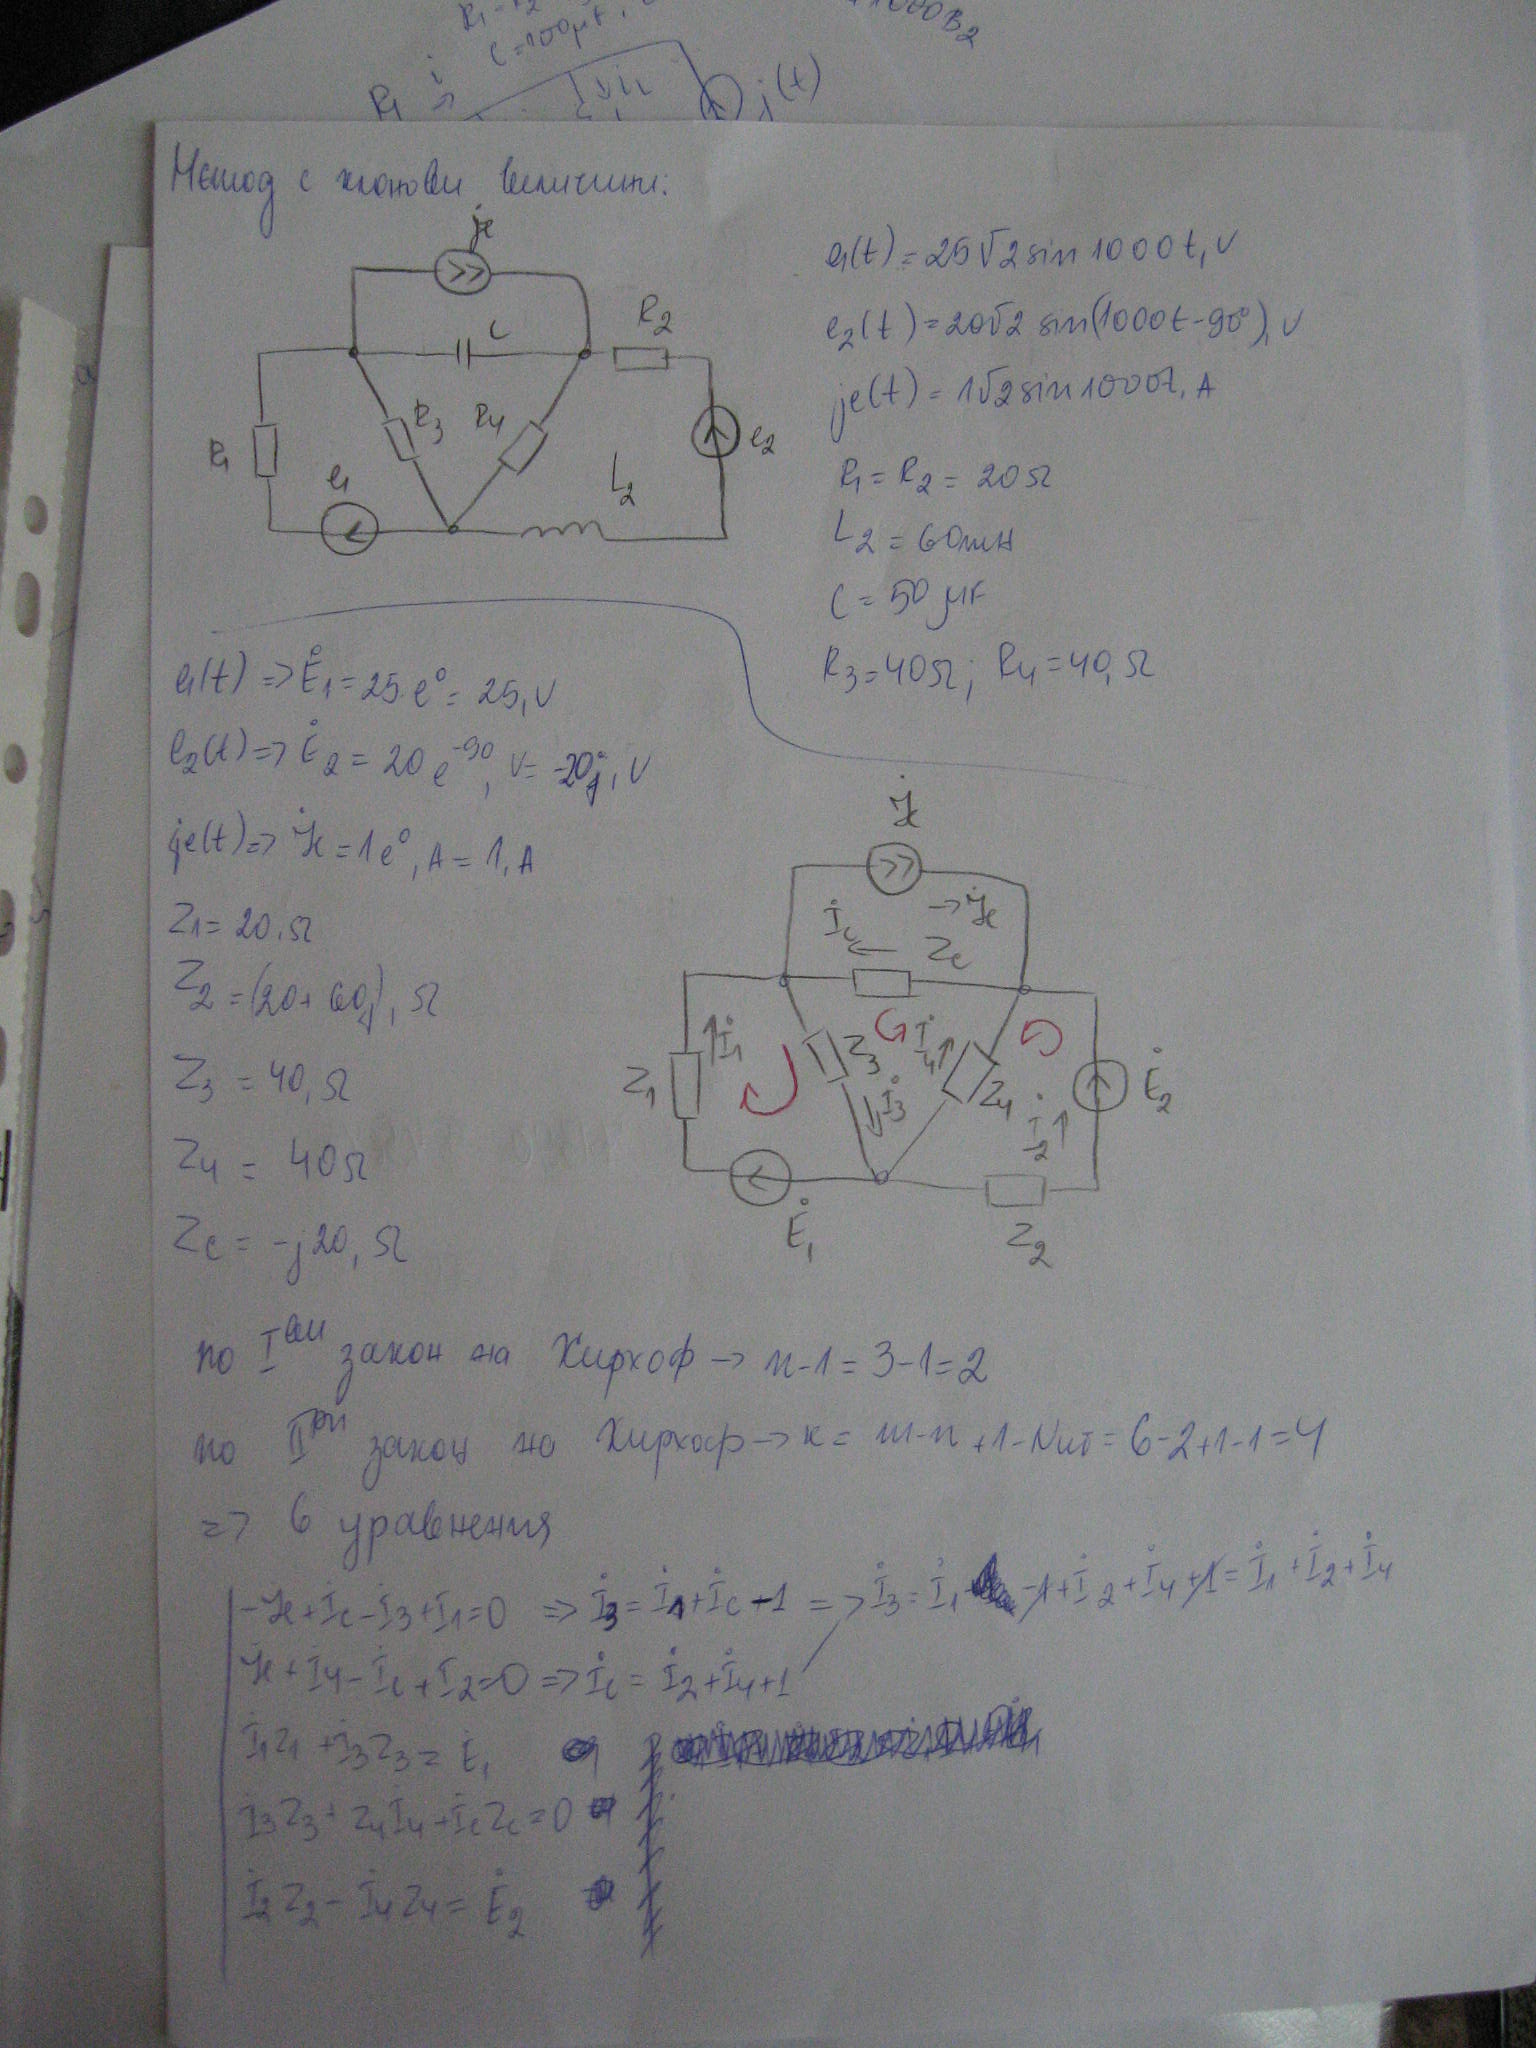 R1
j(t)
Метод с клонови величини:
je
C
R2
R1
R3
R4
e1
L2
e2
e1(t) = 25√2 sin 1000t, V
e2(t) = 20√2 sin(1000t-90°), V
je(t) = 1√2 sin 1000t, A
R1 = R2 = 20Ω
L2 = 60mH
C = 50 μF
R3 = 40Ω; R4 = 40, Ω
e1(t) => Ė1 = 25.e⁰ = 25, V
e2(t) => Ė2 = 20 e⁻⁹⁰, V = -20j, V
je(t) => J̇e = 1e⁰, A = 1, A
Z1 = 20.Ω
Z2 = (20+60j), Ω
Z3 = 40, Ω
Z4 = 40Ω
Zc = -j20, Ω
J̇e
→ J̇e
İc
Zc
İ1
Z1
Z3
İ3
İ4
Z4
İ2
Ė2
Ė1
Z2
по Iви закон на Кирхоф → n-1 = 3-1 = 2
по IIри закон на Кирхоф → к = m-n+1-Nит = 6-2+1-1 = 4
=> 6 уравнения
-J̇e+İc-İ3+İ1=0 => İ3 = İ1+İc-1 => İ3 = İ1 -1+İ2+İ4+1 = İ1+İ2+İ4
J̇e+İ4-İc+İ2=0 => İc = İ2+İ4+1
İ1Z1+İ3Z3 = Ė1
İ3Z3+Z4İ4+İcZc=0
İ2Z2-İ4Z4 = Ė2